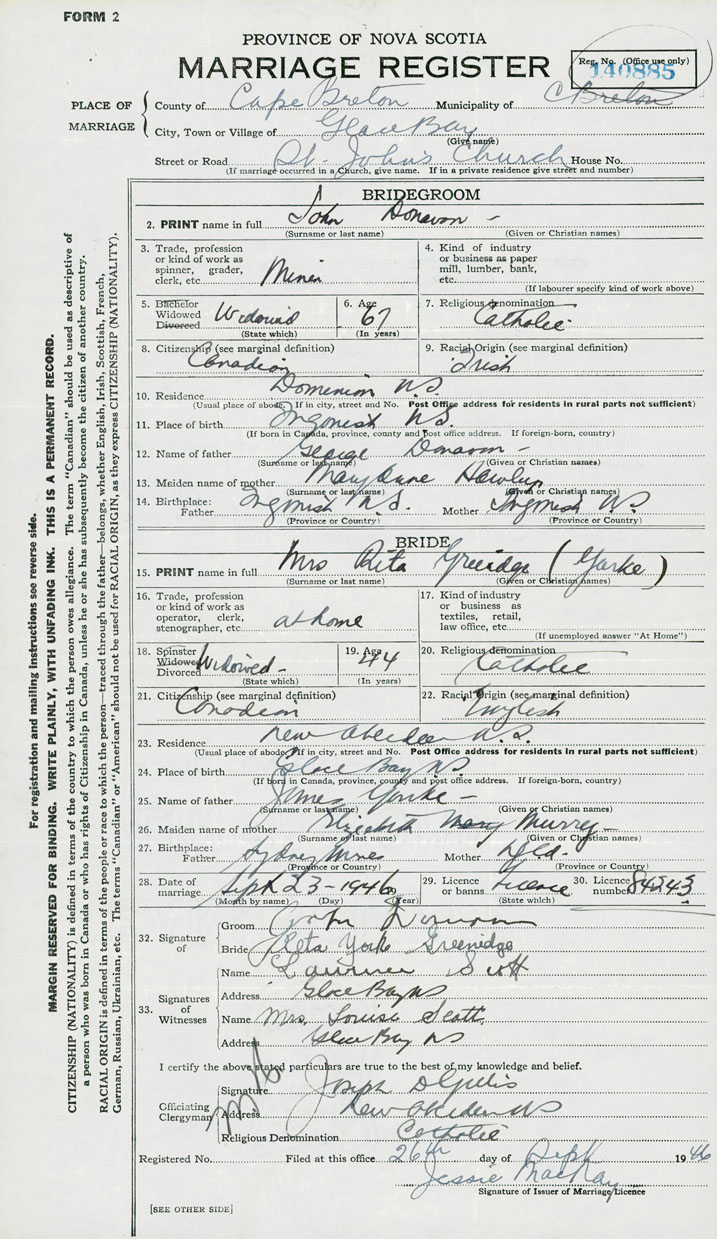 FORM 2
PROVINCE OF NOVA SCOTIA
MARRIAGE REGISTER
Reg. No. (Office use only)
140885
PLACE OF MARRIAGE
County of Cape Breton Municipality of C Breton
City, Town or Village of Glace Bay
(Give name)
Street or Road St. John's Church House No.
(If marriage occurred in a Church, give name. If in a private residence give street and number)
BRIDEGROOM
2. PRINT name in full John Donovan -
(Surname or last name) (Given or Christian names)
3. Trade, profession or kind of work as spinner, grader, clerk, etc. Miner
4. Kind of industry or business as paper mill, lumber, bank, etc.
(If labourer specify kind of work above)
5. Bachelor Widowed Divorced Widowed
(State which)
6. Age 67
(In years)
7. Religious denomination Catholic
8. Citizenship (see marginal definition) Canadian
9. Racial Origin (see marginal definition) Irish
10. Residence Dominion N.S.
(Usual place of abode. If in city, street and No. Post Office address for residents in rural parts not sufficient)
11. Place of birth Ingonish N.S.
(If born in Canada, province, county and post office address. If foreign-born, country)
12. Name of father George Donovan -
(Surname or last name) (Given or Christian names)
13. Maiden name of mother Mary Anne
(Surname or last name) (Given or Christian names)
14. Birthplace: Father Ingonish N.S. Mother Ingonish N.S.
(Province or Country) (Province or Country)
BRIDE
15. PRINT name in full Mrs Rita Greenidge (Yorke)
(Surname or last name) (Given or Christian names)
16. Trade, profession or kind of work as operator, clerk, stenographer, etc. at home
17. Kind of industry or business as textiles, retail, law office, etc.
(If unemployed answer "At Home")
18. Spinster Widowed Divorced Widowed -
(State which)
19. Age 44
(In years)
20. Religious denomination Catholic
21. Citizenship (see marginal definition) Canadian
22. Racial Origin (see marginal definition) English
23. Residence New Aberdeen N.S.
(Usual place of abode. If in city, street and No. Post Office address for residents in rural parts not sufficient)
24. Place of birth Glace Bay N.S.
(If born in Canada, province, county and post office address. If foreign-born, country)
25. Name of father James Yorke -
(Surname or last name) (Given or Christian names)
26. Maiden name of mother Elizabeth Mary Murrey -
(Surname or last name) (Given or Christian names)
27. Birthplace: Father Sydney Mines Mother Nfld.
(Province or Country) (Province or Country)
28. Date of marriage Sept 23 - 1946
(Month by name) (Day) (Year)
29. Licence or banns Licence
(State which)
30. Licence number 84543
32. Signature of
Groom John
Bride Reta Yorke Greenidge
33. Signatures of Witnesses
Name Scott
Address Glace Bay NS
Name Mrs. Louise Scott
Address Glace Bay NS
I certify the above stated particulars are true to the best of my knowledge and belief.
Officiating Clergyman
Signature Joseph D Gillis
Address New Aberdeen NS
Religious Denomination Catholic
Registered No. Filed at this office 26th day of Sept 1946
Jessie MacKay
Signature of Issuer of Marriage Licence
[SEE OTHER SIDE]
For registration and mailing instructions see reverse side.
MARGIN RESERVED FOR BINDING. WRITE PLAINLY, WITH UNFADING INK. THIS IS A PERMANENT RECORD.
CITIZENSHIP (NATIONALITY) is defined in terms of the country to which the person owes allegiance. The term "Canadian" should be used as descriptive of
a person who was born in Canada or who has rights of Citizenship in Canada, unless he or she has subsequently become the citizen of another country.
RACIAL ORIGIN is defined in terms of the people or race to which the person—traced through the father—belongs, whether English, Irish, Scottish, French,
German, Russian, Ukrainian, etc. The terms "Canadian" or "American" should not be used for RACIAL ORIGIN, as they express CITIZENSHIP (NATIONALITY).